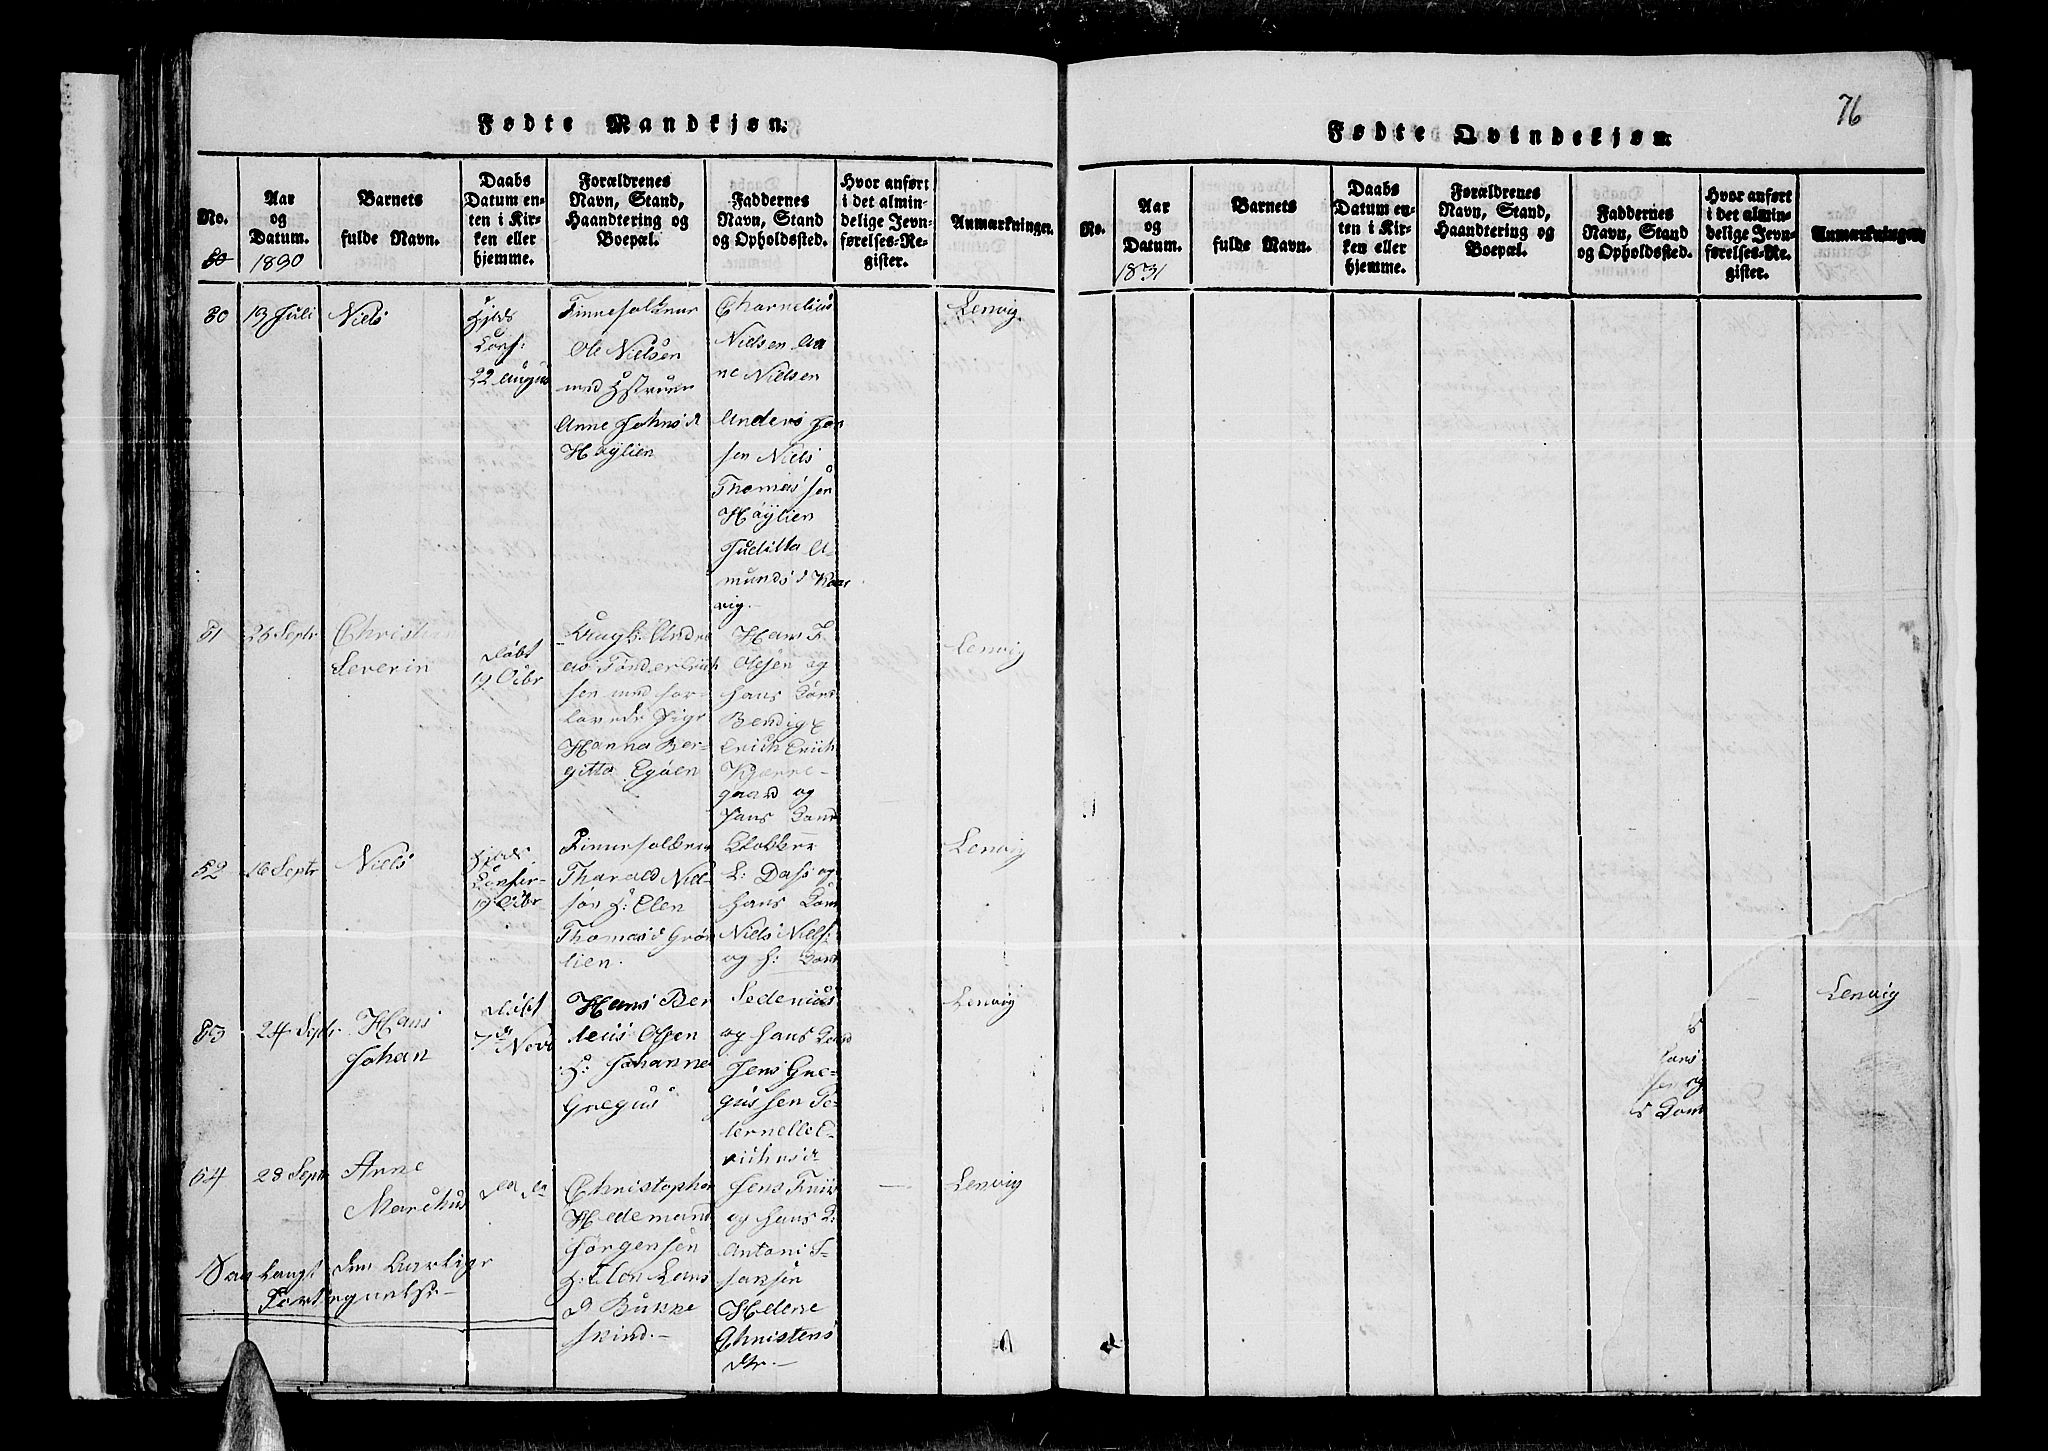 Fødte Mandkjøn.
No.
Aar og Datum.
1830
Barnets fulde Navn.
Daabs Datum enten i Kirken eller hjemme.
Forældrenes Navn, Stand, Haandtering og Boepæl.
Faddernes Navn, Stand og Opholdssted.
Hvor anført i det almindelige Jevnførelses-Register.
Anmærkninger.
50
13 Juli
Niels
Hjds
Conf:
22 August
Ole Nielsen
med Hustrue
Anne Johnsd
Høylien
Chornelius
Nielsen An
ne Nielsen
Anders Jon
sen Niels
Thomas sen
Høylien
Juditta A-
munds d
vig.-
Lenvig
51
26 Septr
Christian
Severin
Døbt
19 Octbr
Ungk: Andre
as Tønder Erich
sen med for
lovede Pige
Hanna Ber-
gitta Egøen
Hans F
Olsen og
hans Kone
Bendigx
Erich Erich
Kjerre-
gaard og
hans Kone
Lenvig
52
16 Septr
Niels
Hjds
Confir-
19 Octbr
Tharald Niel-
sen H: Elen
Thomasd Grø
lien.
Klokker
L: Dass og
hans Kone
Niels Niels:
og h: Kone
Lenvig
53
24 Septr
Hans
Johan
Døbt
7de Novb
Hans Ber
teus Olsen
H: Johanne
Gregus
Sedenius
og hans Kone
Jens Gre-
gussen Pe-
ternelle E-
richs d
Lenvig
54
28 Septr
Anne
Marchus
Do Do
Christopher
Hedemand
Jørgensen
H: Elen Lars
D Bukke
skind.-
Jens Friis
og hans K:
Antoni J-
hansen
Helene
Christens
dtr.-
Lenvig
Saa langt den Aarlige
Fortegnelse-
76
Fødte Qvindekjøn.
No.
Aar og Datum.
1831
Barnets fulde Navn.
Daabs Datum enten i Kirken eller hjemme.
Forældrenes Navn, Stand, Haandtering og Boepæl.
Faddernes Navn, Stand og Opholdssted.
Hvor anført i det almindelige Jevnførelses-Register.
Anmærkninger.
Lenvig